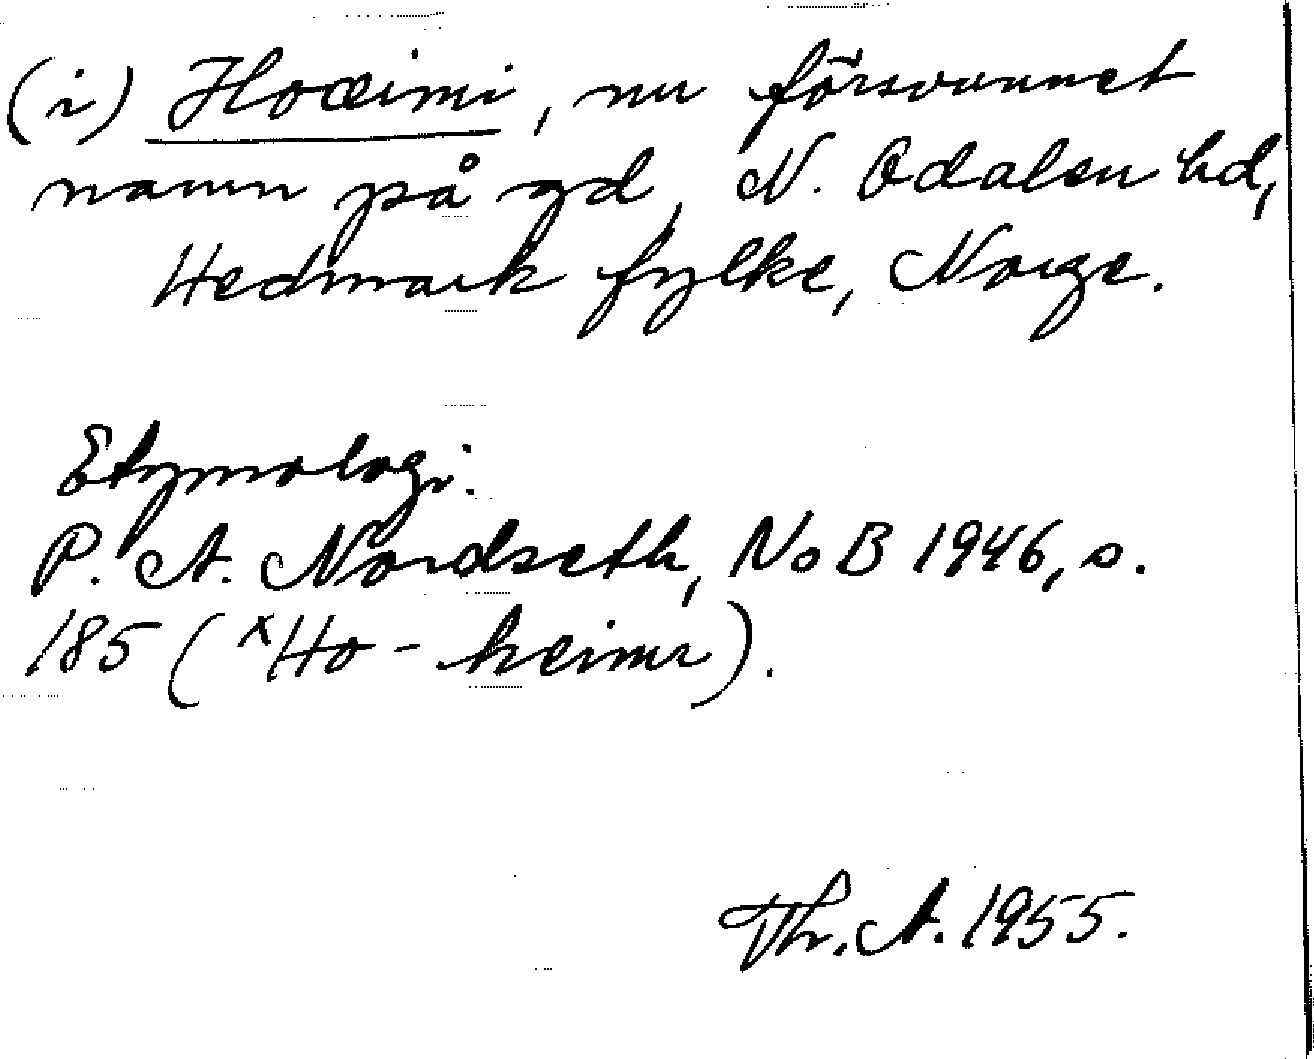 (i) Hoæimi, nu försvunnet
namn på gd, N. Odalen hd,
Hedmark fylke, Norge.
Etymologi.
P. A. Nordseth, NoB 1946, s.
185 (ˣHo-heimr).
Th. A. 1955.